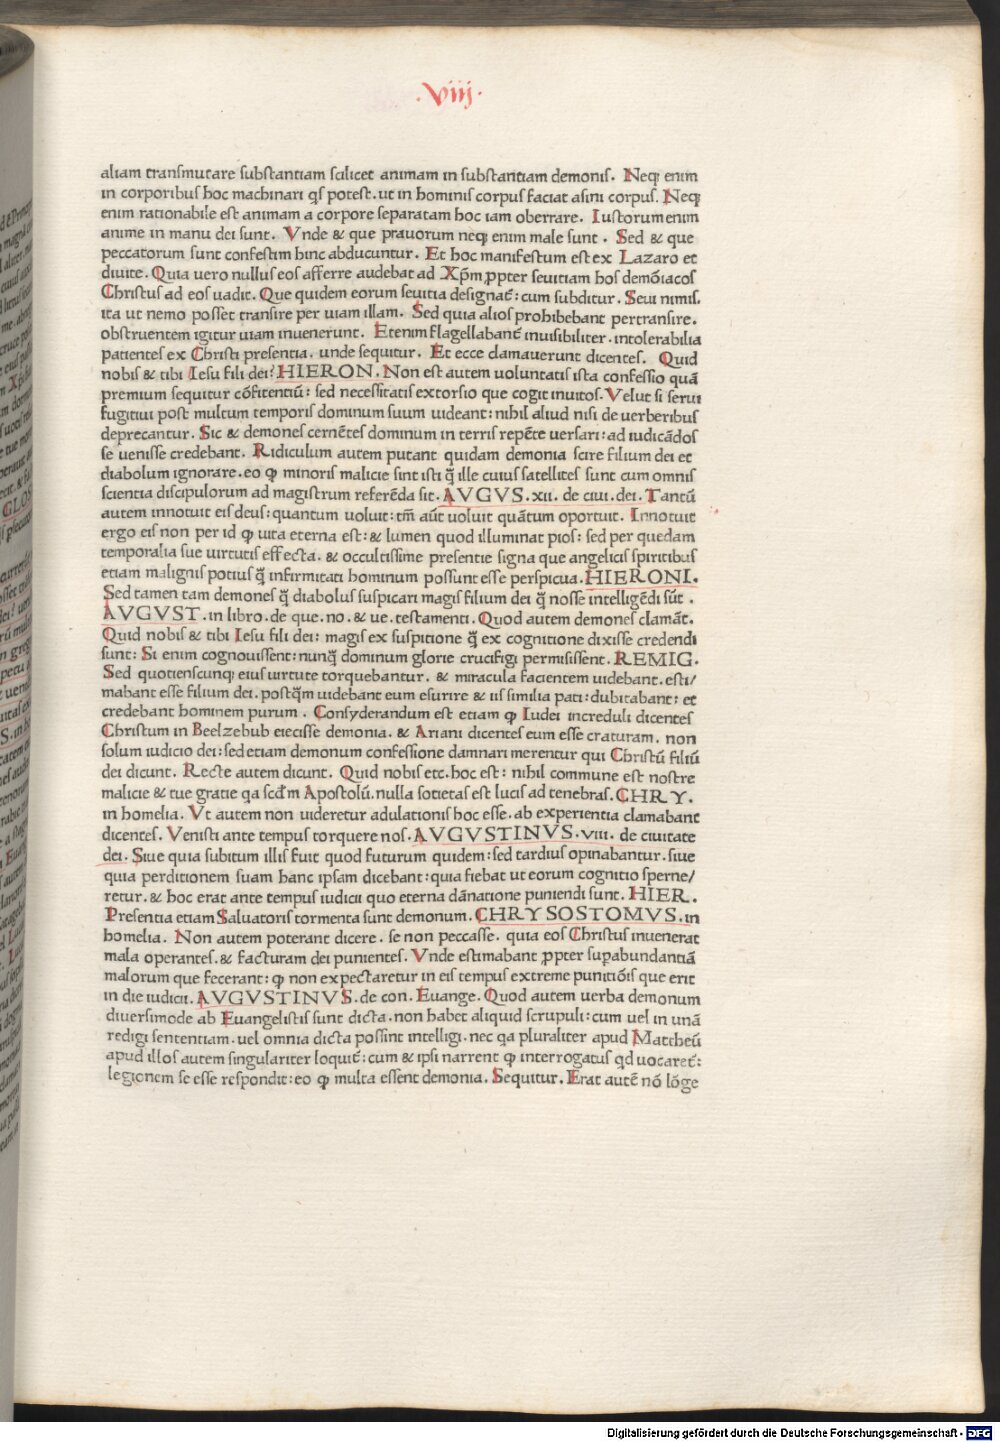 .viij.
aliam transmutare substantiam scilicet animam in substantiam demonis. Neqꝫ enim
in corporibus hoc machinari qs potest. ut in hominis corpus faciat asini corpus. Neqꝫ
enim rationabile est animam a corpore separatam hoc iam oberrare. Iustorum enim
anime in manu dei sunt. Vnde & que prauorum neqꝫ enim male sunt. Sed & que
peccatorum sunt confestim hinc abducuntur. Et hoc manifestum est ex Lazaro et
diuite. Quia uero nullus eos afferre audebat ad Xp̄m ꝓpter seuitiam hos demōiacos
Christus ad eos uadit. Que quidem eorum seuitia designat᷑: cum subditur. Seui nimis.
ita ut nemo posset transire per uiam illam. Sed quia alios prohibebant pertransire.
obstruentem igitur uiam inuenerunt. Etenim flagellabant᷑ inuisibiliter. intolerabilia
patientes ex Christi presentia. unde sequitur. Et ecce clamauerunt dicentes. Quid
nobis & tibi Iesu fili dei? HIERON. Non est autem uoluntatis ista confessio quā
premium sequitur cōfitentiū: sed necessitatis extorsio que cogit inuitos. Velut si serui
fugitiui post multum temporis dominum suum uideant: nihil aliud nisi de uerberibus
deprecantur. Sic & demones cernētes dominum in terris repēte uersari: ad iudicādos
se uenisse credebant. Ridiculum autem putant quidam demonia scire filium dei et
diabolum ignorare. eo ꝙ minoris malicie sint isti q̄ ille cuius satellites sunt cum omnis
scientia discipulorum ad magistrum referēda sit. AVGVS. xii. de ciui. dei. Tantū
autem innotuit eis deus: quantum uoluit: tm̄ aūt uoluit quātum oportuit. Innotuit
ergo eis non per id ꝙ uita eterna est: & lumen quod illuminat pios: sed per quedam
temporalia sue uirtutis effecta. & occultissime presentie signa que angelicis spiritibus
etiam malignis potius q̄ infirmitati hominum possunt esse perspicua. HIERONI.
Sed tamen tam demones q̄ diabolus suspicari magis filium dei q̄ nosse intelligēdi sūt.
AVGVST. in libro. de que. no. & ue. testamenti. Quod autem demones clamāt.
Quid nobis & tibi Iesu fili dei: magis ex suspitione q̄ ex cognitione dixisse credendi
sunt: Si enim cognouissent: nunq̄ dominum glorie crucifigi permisissent. REMIG.
Sed quotienscunqꝫ eius uirtute torquebantur. & miracula facientem uidebant. esti/
mabant esse filium dei. postq̄m uidebant eum esurire & iis similia pati: dubitabant: et
credebant hominem purum. Consyderandum est etiam ꝙ Iudei increduli dicentes
Christum in Beelzebub eiecisse demonia. & Ariani dicentes eum esse craturam. non
solum iudicio dei: sed etiam demonum confessione damnari merentur qui Christū filiū
dei dicunt. Recte autem dicunt. Quid nobis etc. hoc est: nihil commune est nostre
malicie & tue gratie qa scd̄m Apostolū. nulla societas est lucis ad tenebras. CHRY.
in homelia. Vt autem non uideretur adulationis hoc esse. ab experientia clamabant
dicentes. Venisti ante tempus torquere nos. AVGVSTINVS. viii. de ciuitate
dei. Siue quia subitum illis fuit quod futurum quidem: sed tardius opinabantur. siue
quia perditionem suam hanc ipsam dicebant: quia fiebat ut eorum cognitio sperne/
retur. & hoc erat ante tempus iudicii quo eterna dānatione puniendi sunt. HIER.
Presentia etiam Saluatoris tormenta sunt demonum. CHRYSOSTOMVS. in
homelia. Non autem poterant dicere. se non peccasse. quia eos Christus inuenerat
mala operantes. & facturam dei punientes. Vnde estimabant ꝓpter suꝑabundantiā
malorum que fecerant: ꝙ non expectaretur in eis tempus extreme punitiōis que erit
in die iudicii. AVGVSTINVS. de con. Euange. Quod autem uerba demonum
diuersimode ab Euangelistis sunt dicta. non habet aliquid scrupuli: cum uel in unā
redigi sententiam. uel omnia dicta possint intelligi. nec qa pluraliter apud Mattheū
apud illos autem singulariter loquit᷑: cum & ipsi narrent ꝙ interrogatus qd uocaret᷑:
legionem se esse respondit: eo ꝙ multa essent demonia. Sequitur. Erat autē nō lōge
Digitalisierung gefördert durch die Deutsche Forschungsgemeinschaft - DFG